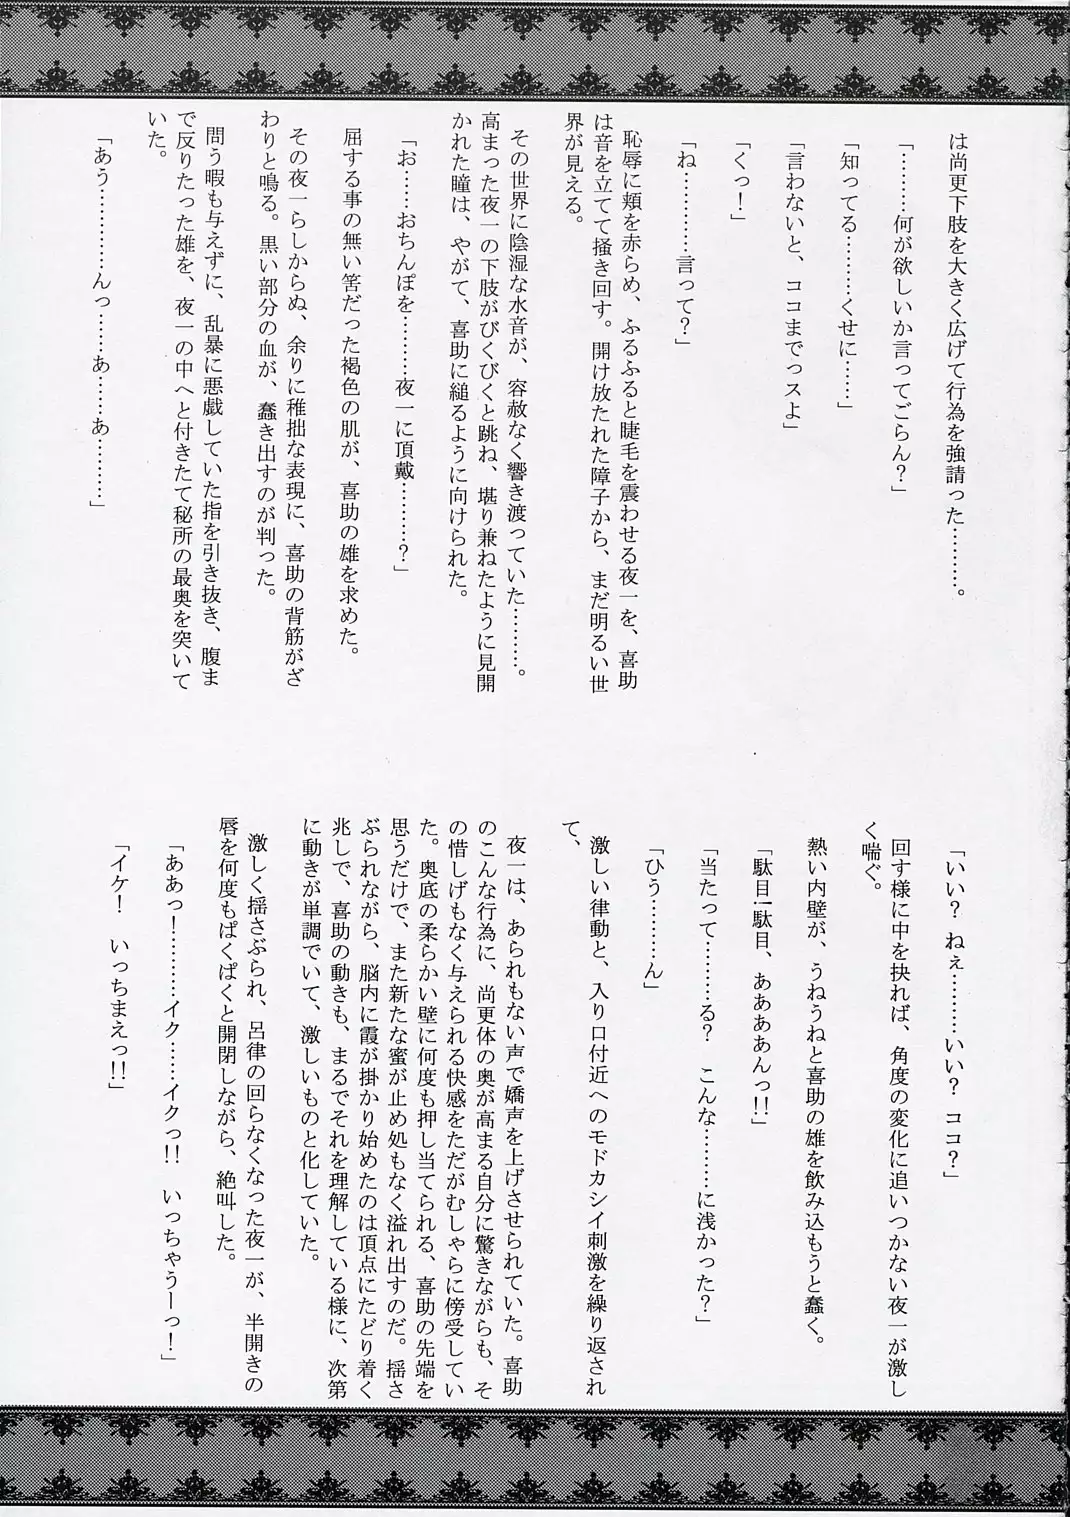 は尚更下肢を大きく広げて行為を強請った…………。
「………何が欲しいか言ってごらん？」
「知ってる………くせに……」
「言わないと、ココまでっスよ」
「くっ！」
「ね…………言って？」
恥辱に頬を赤らめ、ふるふると睫毛を震わせる夜一を、喜助
は音を立てて掻き回す。開け放たれた障子から、まだ明るい世
界が見える。
その世界に陰湿な水音が、容赦なく響き渡っていた………。
高まった夜一の下肢がびくびくと跳ね、堪り兼ねたように見開
かれた瞳は、やがて、喜助に縋るように向けられた。
「お……おちんぽを…………夜一に頂戴…………？」
屈する事の無い筈だった褐色の肌が、喜助の雄を求めた。
その夜一らしからぬ、余りに稚拙な表現に、喜助の背筋がざ
わりと鳴る。黒い部分の血が、蠢き出すのが判った。
問う暇も与えずに、乱暴に悪戯していた指を引き抜き、腹ま
で反りたった雄を、夜一の中へと付きたて秘所の最奥を突いて
いた。
「あう…………んっ……あ……あ………」
「いい？ねぇ………いい？ココ？」
回す様に中を抉れば、角度の変化に追いつかない夜一が激し
く喘ぐ。
熱い内壁が、うねうねと喜助の雄を飲み込もうと蠢く。
「駄目！駄目、ああああんっ!!」
「当たって…………る？　こんな………に浅かった？」
「ひう…………ん」
激しい律動と、入り口付近へのモドカシイ刺激を繰り返され
て、
夜一は、あられもない声で嬌声を上げさせられていた。喜助
のこんな行為に、尚更体の奥が高まる自分に驚きながらも、そ
の惜しげもなく与えられる快感をただがむしゃらに傍受してい
た。奥底の柔らかい壁に何度も押し当てられる、喜助の先端を
思うだけで、また新たな蜜が止め処もなく溢れ出すのだ。揺さ
ぶられながら、脳内に霞が掛かり始めたのは頂点にたどり着く
兆しで、喜助の動きも、まるでそれを理解している様に、次第
に動きが単調でいて、激しいものと化していた。
激しく揺さぶられ、呂律の回らなくなった夜一が、半開きの
唇を何度もぱくぱくと開閉しながら、絶叫した。
「ああっ！………イク……イクっ!!　いっちゃうーっ！」
「イケ！　いっちまえっ!!」